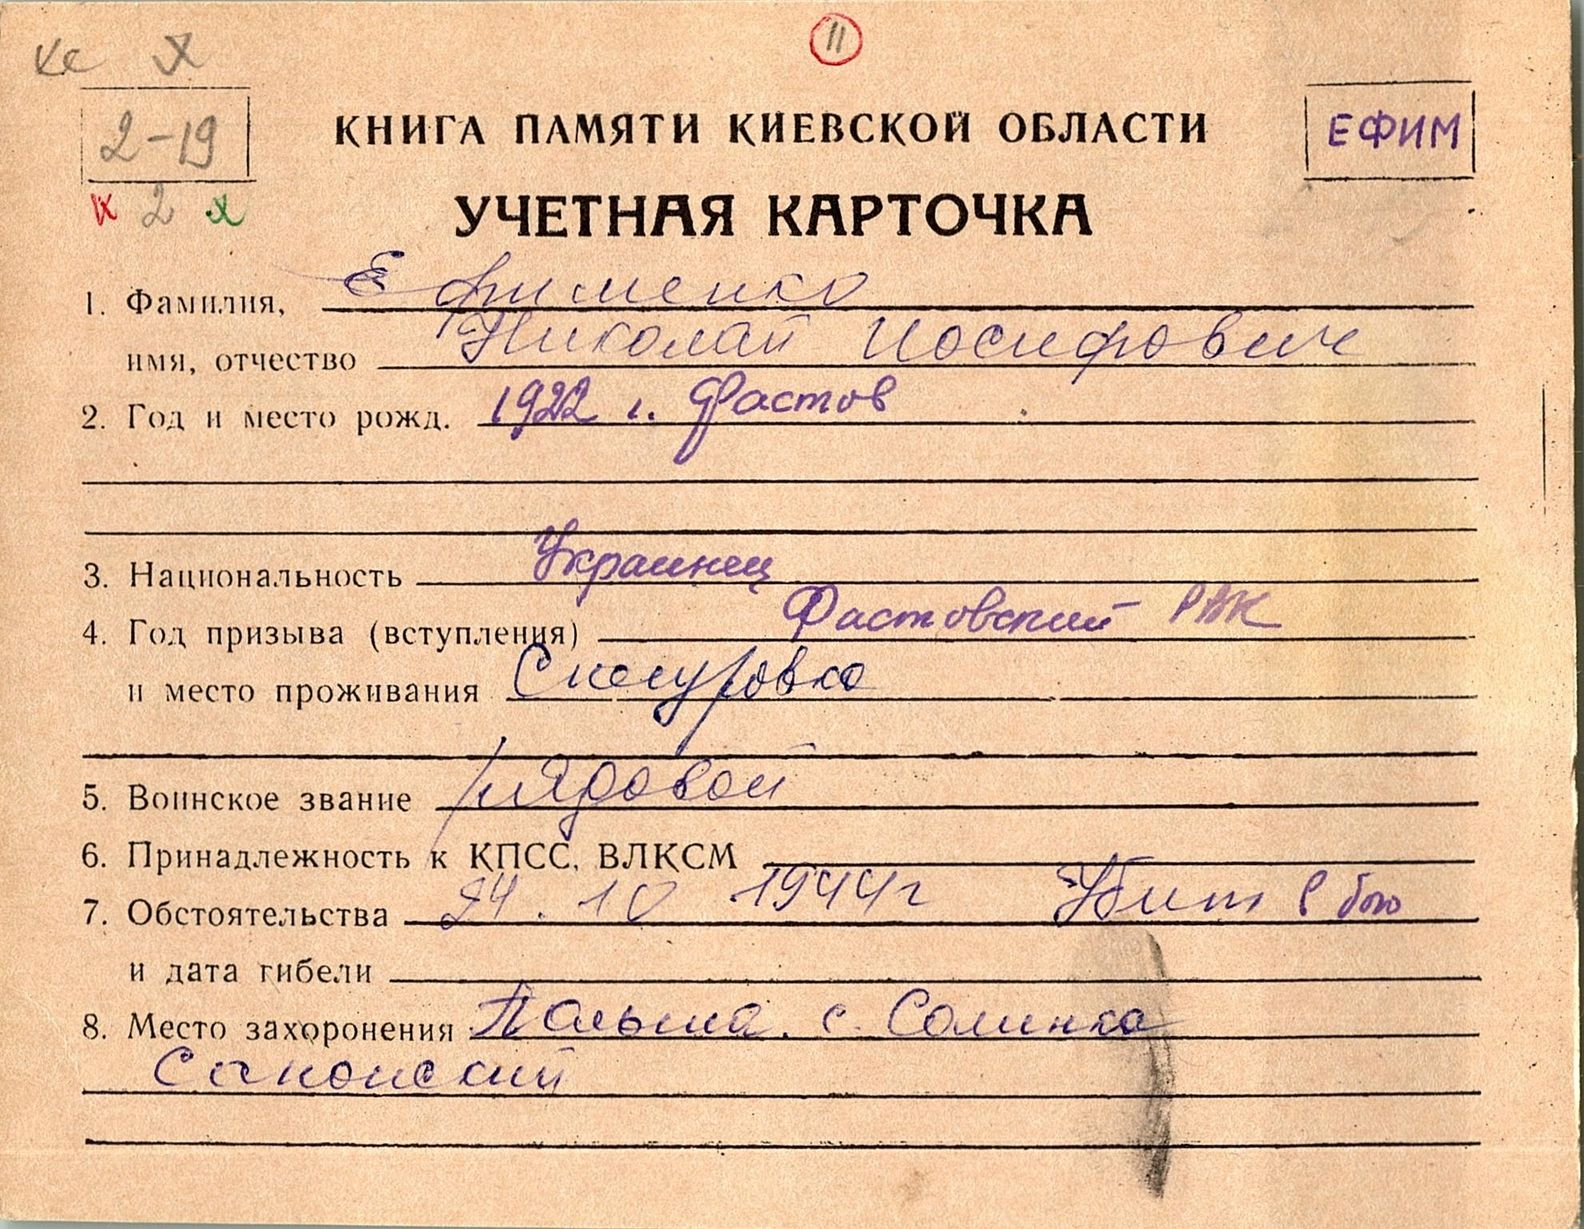 11
2-19
КНИГА ПАМЯТИ КИЕВСКОЙ ОБЛАСТИ
ЕФИМ
2
УЧЕТНАЯ КАРТОЧКА
1. Фамилия, Ефименко
имя, отчество Николай Иосифович
2. Год и место рожд. 1922 г. Фастов
3. Национальность Украинец
4. Год призыва (вступления) Фастовский РВК
и место проживания
5. Воинское звание рядовой
6. Принадлежность к КПСС, ВЛКСМ
7. Обстоятельства 24. 10 1944 г Убит в бою
и дата гибели
8. Место захоронения Польша. с. Солинка
Санокский